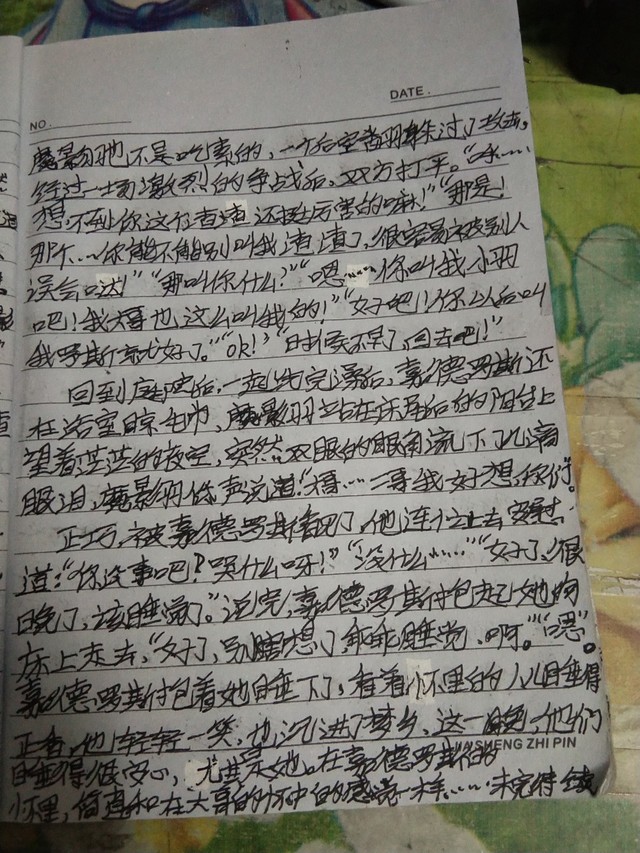 NO.
DATE.
魔影她也不是吃素的，一个后空翻躲过了攻击。
经过一场激烈的争战后，双方打平。“哼……
想不到你这个渣渣还挺厉害的嘛！”“那是！
那个……你能不能别叫我渣渣了，很容易被别人
误会哒！”“那叫你什么？”“嗯……你叫我小羽
吧！我大哥也这么叫我的！”“好吧！你以后叫
我罗斯就好了。”“OK！”“时候不早了，回去吧！”
回到庭院后，一起洗完澡后，嘉德罗斯还
在浴室晾毛巾，魔影羽站在床后的阳台上
望着茫茫的夜空，突然双眼的眼角流下几滴
眼泪，魔影羽低声说道：“大哥……二哥我好想你们。
正巧，被嘉德罗斯看见了，他连忙上去安慰
道：“你没事吧？哭什么呀！”“没什么……”“好了，很
晚了，该睡觉了。”说完，嘉德罗斯抱起她向
床上走去，“好了，别瞎想了，乖乖睡觉，啊。”“嗯”。
嘉德罗斯抱着她睡下了，看着怀里的人儿睡得
正香，他轻轻一笑，也沉进了梦乡，这一晚，他们
睡得很安心，尤其是她。在嘉德罗斯的
怀里，简直和在大哥的怀中的感觉一样……未完待续
SHENG ZHI PIN